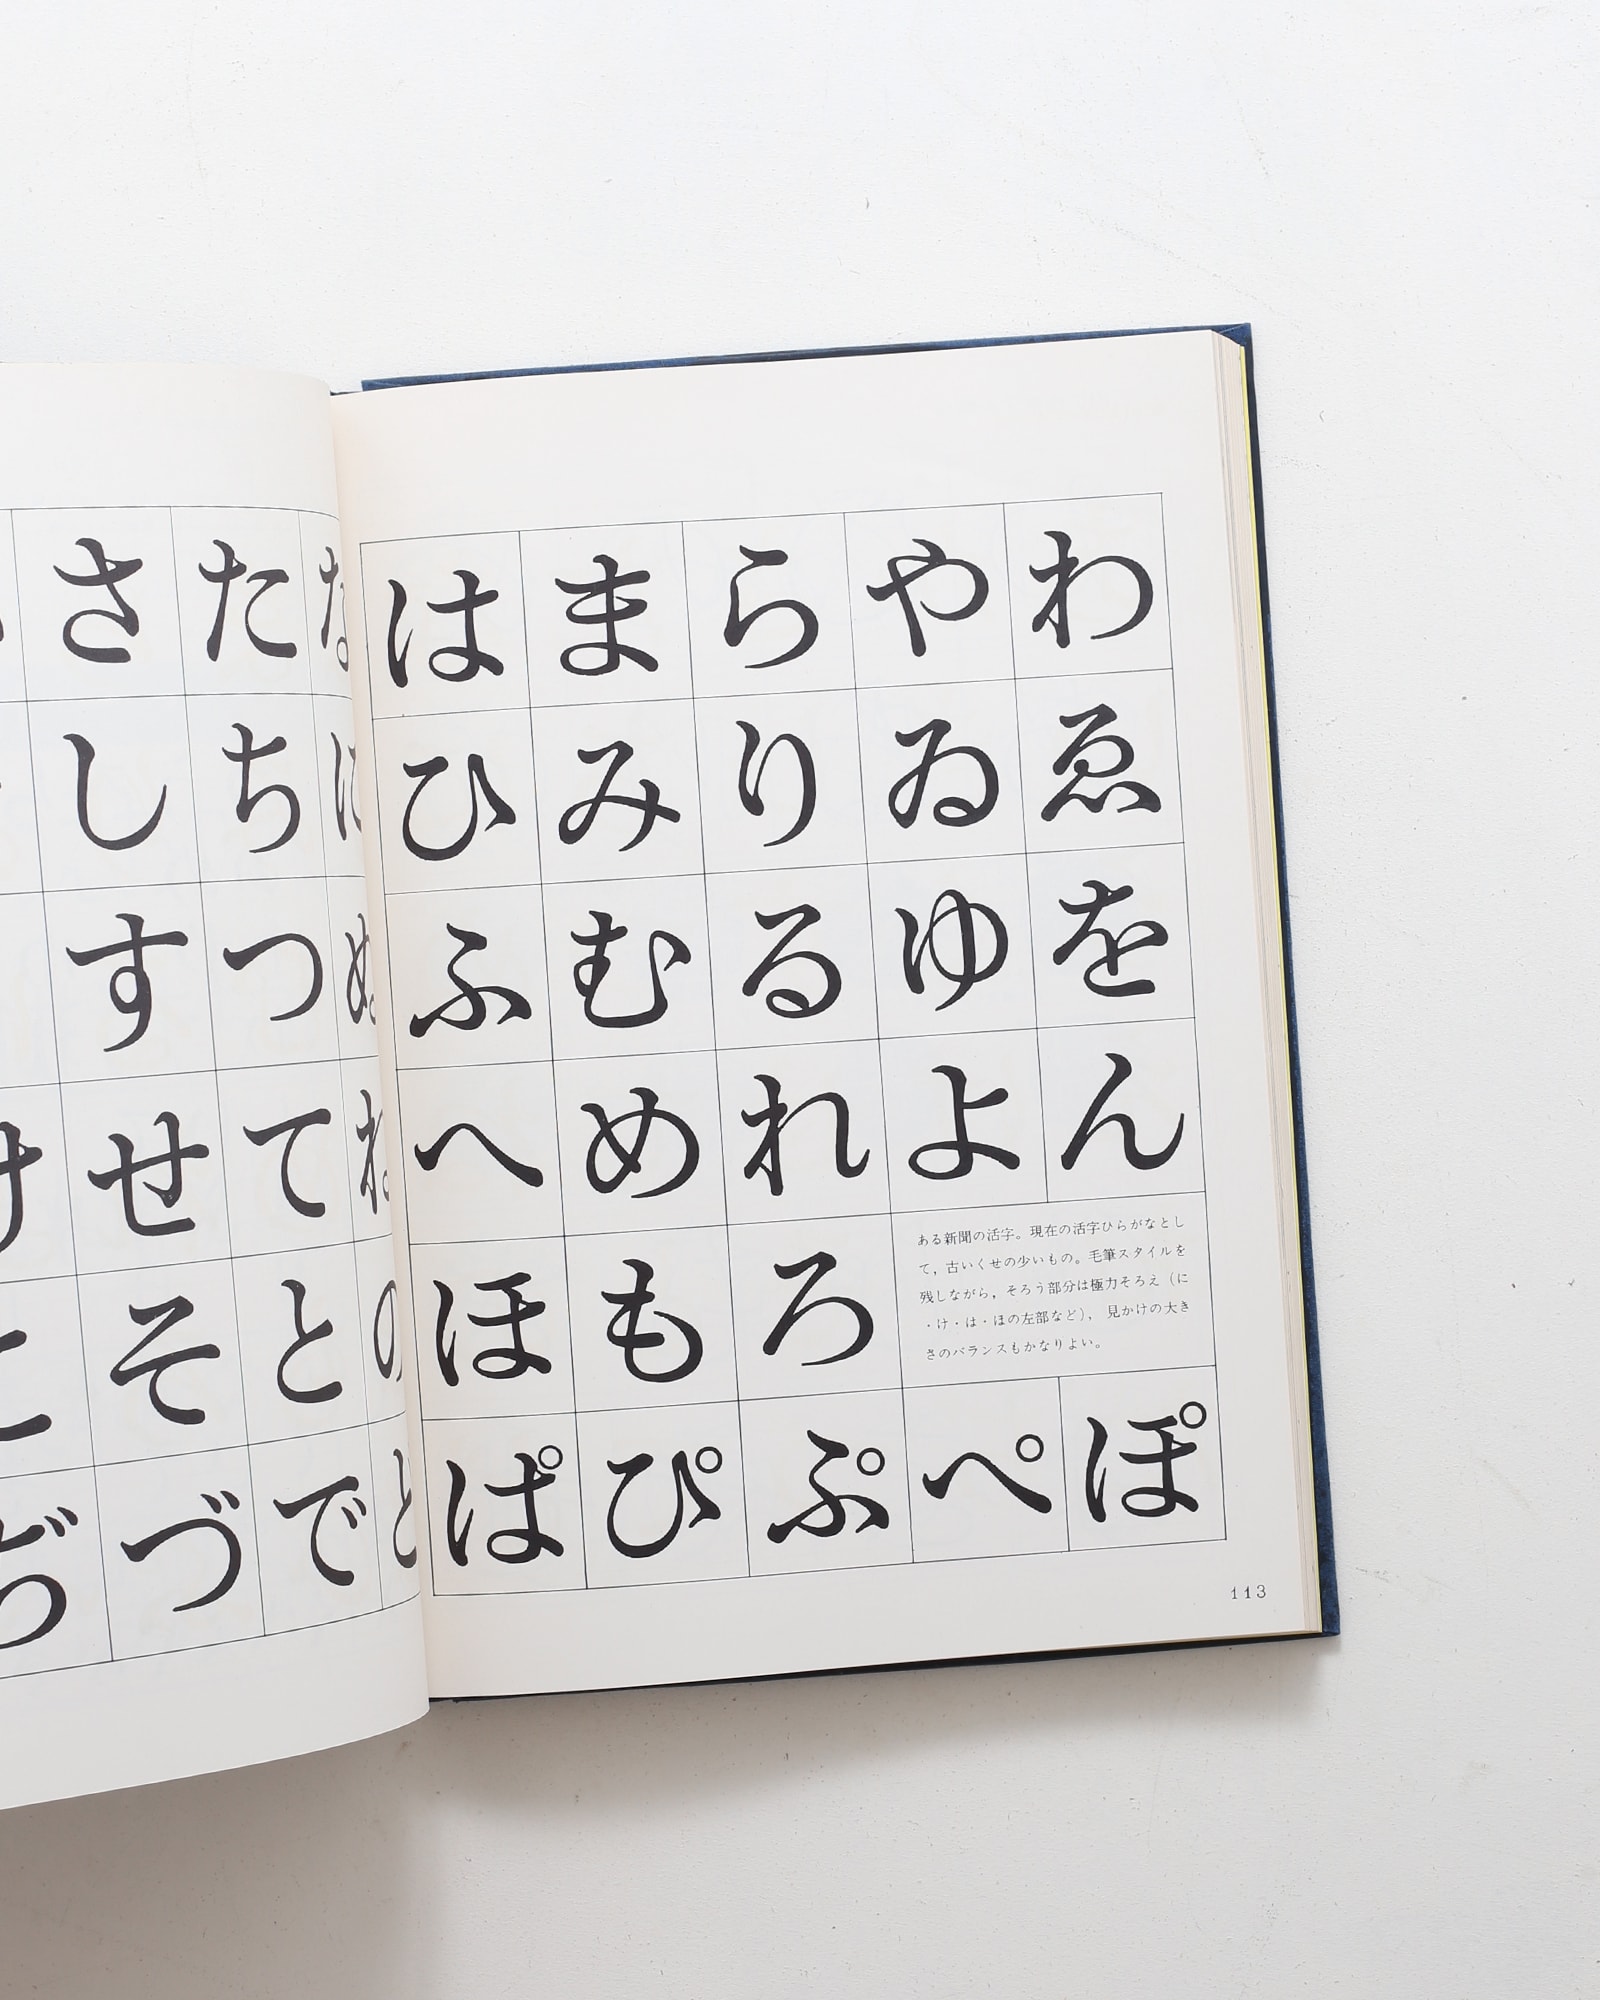 さ た な
し ち に
す つ ぬ
け せ て ね
こ そ と の
づ で ど
は ま ら や わ
ひ み り ゐ ゑ
ふ む る ゆ を
へ め れ よ ん
ほ も ろ
ある新聞の活字。現在の活字ひらがなとし
て，古いくせの少いもの。毛筆スタイルを
残しながら，そろう部分は極力そろえ（に
・け・は・ほの左部など），見かけの大き
さのバランスもかなりよい。
ぱ ぴ ぷ ぺ ぽ
113